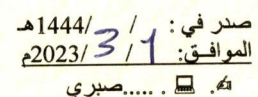 صدر في : / /1444هـ
الموافق: 1/ 3 /2023م
.....صبري